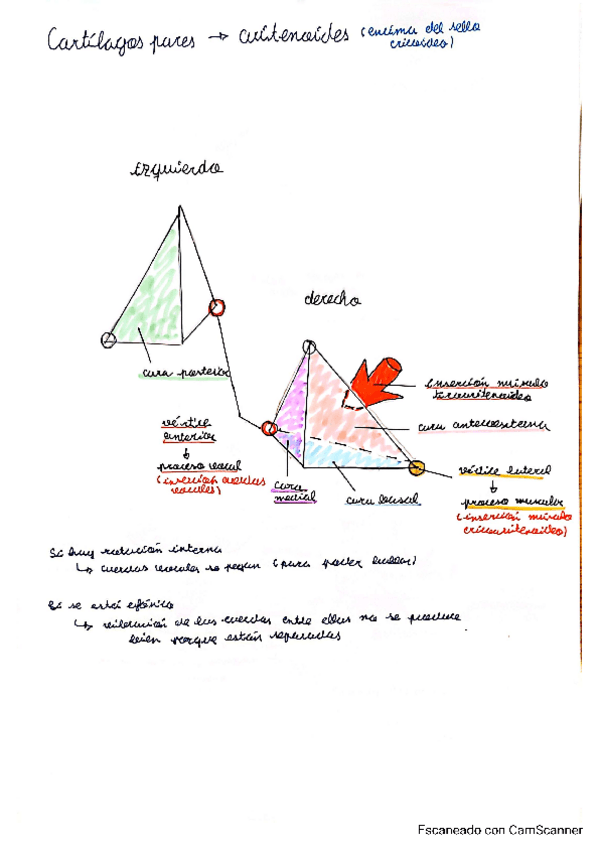 Cartílagos pares → aritenoides (encima del sello
cricoideo)
izquierdo
derecho
cara posterior
inserción músculo
tiroaritenoideo
cara anteroexterna
vértice
anterior
↓
proceso vocal
(inserción cuerdas
vocales)
cara
medial
cara basal
vértice lateral
↓
proceso muscular
(inserción músculo
cricoaritenoideo)
Si hay rotación interna
↳ cuerdas vocales se pegan (para poder hablar)
Si se está afónico
↳ vibración de las cuerdas entre ellas no se produce
bien porque están separadas
Escaneado con CamScanner